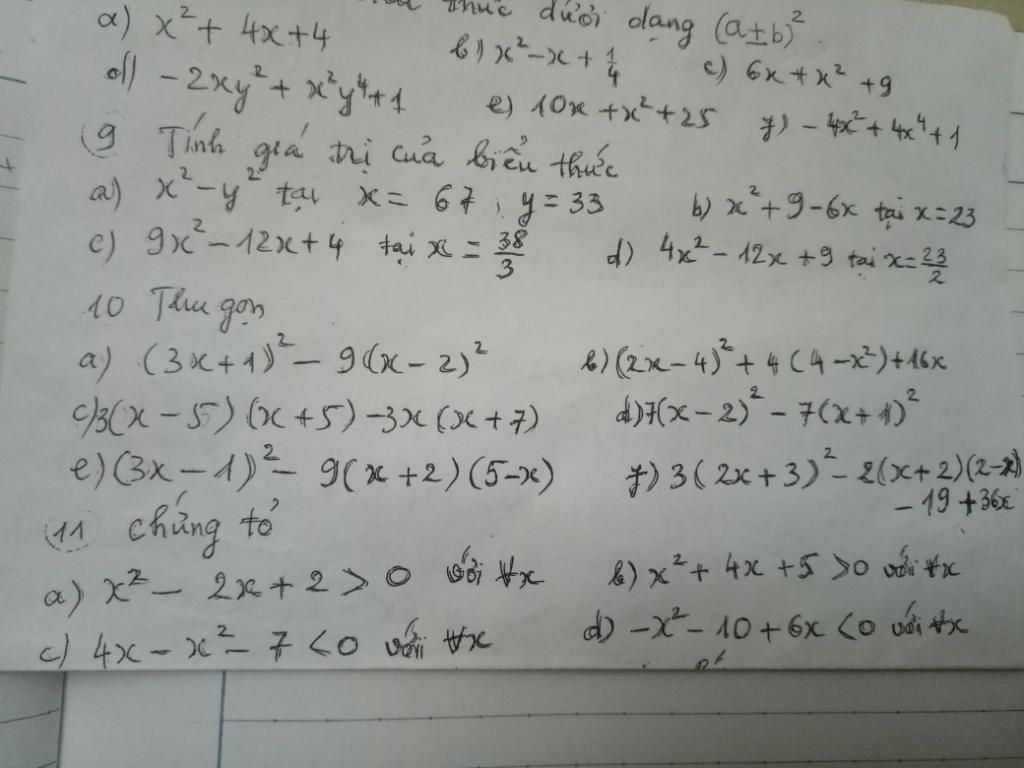 thức dưới dạng (a±b)²
a) x² + 4x + 4 b) x² - x + 1/4 c) 6x + x² + 9
d) -2xy² + x²y⁴ + 1 e) 10x + x² + 25 f) - 4x² + 4x⁴ + 1
9 Tính giá trị của biểu thức
a) x² - y² tại x = 67, y = 33 b) x² + 9 - 6x tại x = 23
c) 9x² - 12x + 4 tại x = 38/3 d) 4x² - 12x + 9 tại x = 23/2
10 Thu gọn
a) (3x + 1)² - 9(x - 2)² b) (2x - 4)² + 4(4 - x²) + 16x
c) 3(x - 5)(x + 5) - 3x(x + 7) d) 7(x - 2)² - 7(x + 1)²
e) (3x - 1)² - 9(x + 2)(5 - x) f) 3(2x + 3)² - 2(x + 2)(2 - x)
- 19 + 36x
11 chứng tỏ
a) x² - 2x + 2 > 0 với ∀x b) x² + 4x + 5 > 0 với ∀x
c) 4x - x² - 7 < 0 với ∀x d) -x² - 10 + 6x < 0 với ∀x